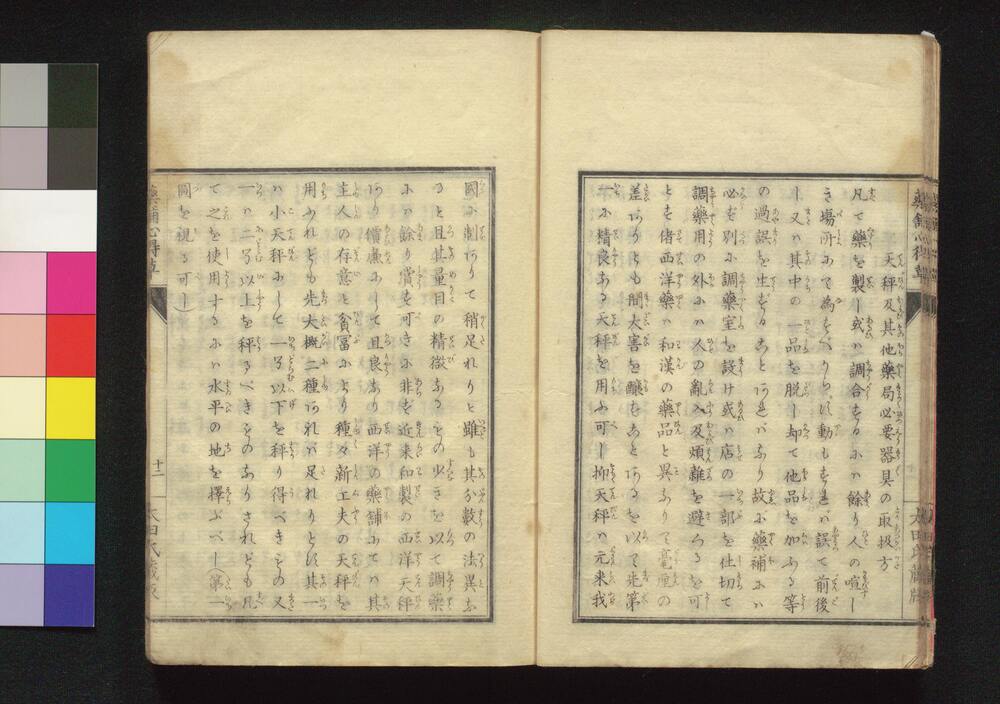 天秤及其他藥局必要器具の取扱方
凡て藥を製し或ハ調合するにハ餘り人の喧し
き場所にて為すべからず動もすれバ誤て前後
し又ハ其中の一品を脱し却て他品を加ふる等
の過誤を生ずることあれバなり故に藥補にハ
必ず別に調藥室を設け或ハ店の一部を仕切て
調藥用の外にハ人の亂入及煩雜を避くるを可
とす偖西洋藥ハ和漢の藥品と異なりて毫厘の
差ありとも間大害を釀すことあるを以て先第
一に精良なる天秤を用ふ可し抑天秤ハ元来我
國に制ありて稍足れりと雖も其分數の法異な
ると且其量目の精微なるもの少きを以て調藥
にハ餘り賞す可きに非ず近来和製の西洋天秤
あり價廉にして且良なり西洋の藥舗にてハ其
主人の存意と貧富により種々新工夫の天秤を
用ふれども先大概二種あれバ足れりとす其一
ハ小天秤にして一号以下を秤り得べきもの又
一ハ二号以上を秤るべきものなりされども凡
て之を使用するにハ水平の地を擇ぶべし（第一
圖を視る可し）
藥舖心得草
十二
太田氏藏版